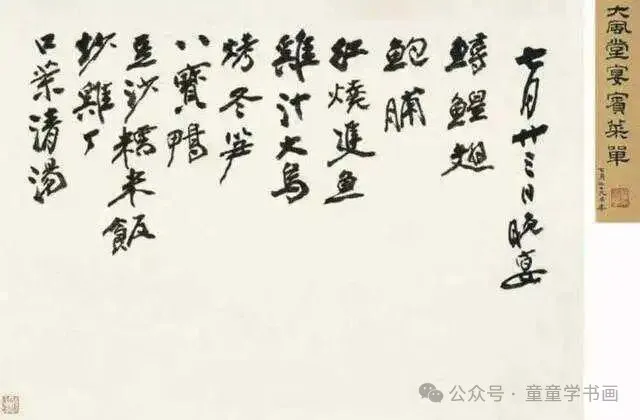 大風堂宴賓菜單
七月廿三日晚宴
鱘鰉翅
鮑脯
紅燒進魚
雞汁大烏
烤冬笋
八寶鴨
豆沙糯米飯
炒雞丁
口菜清湯
公众号 · 童童学书画